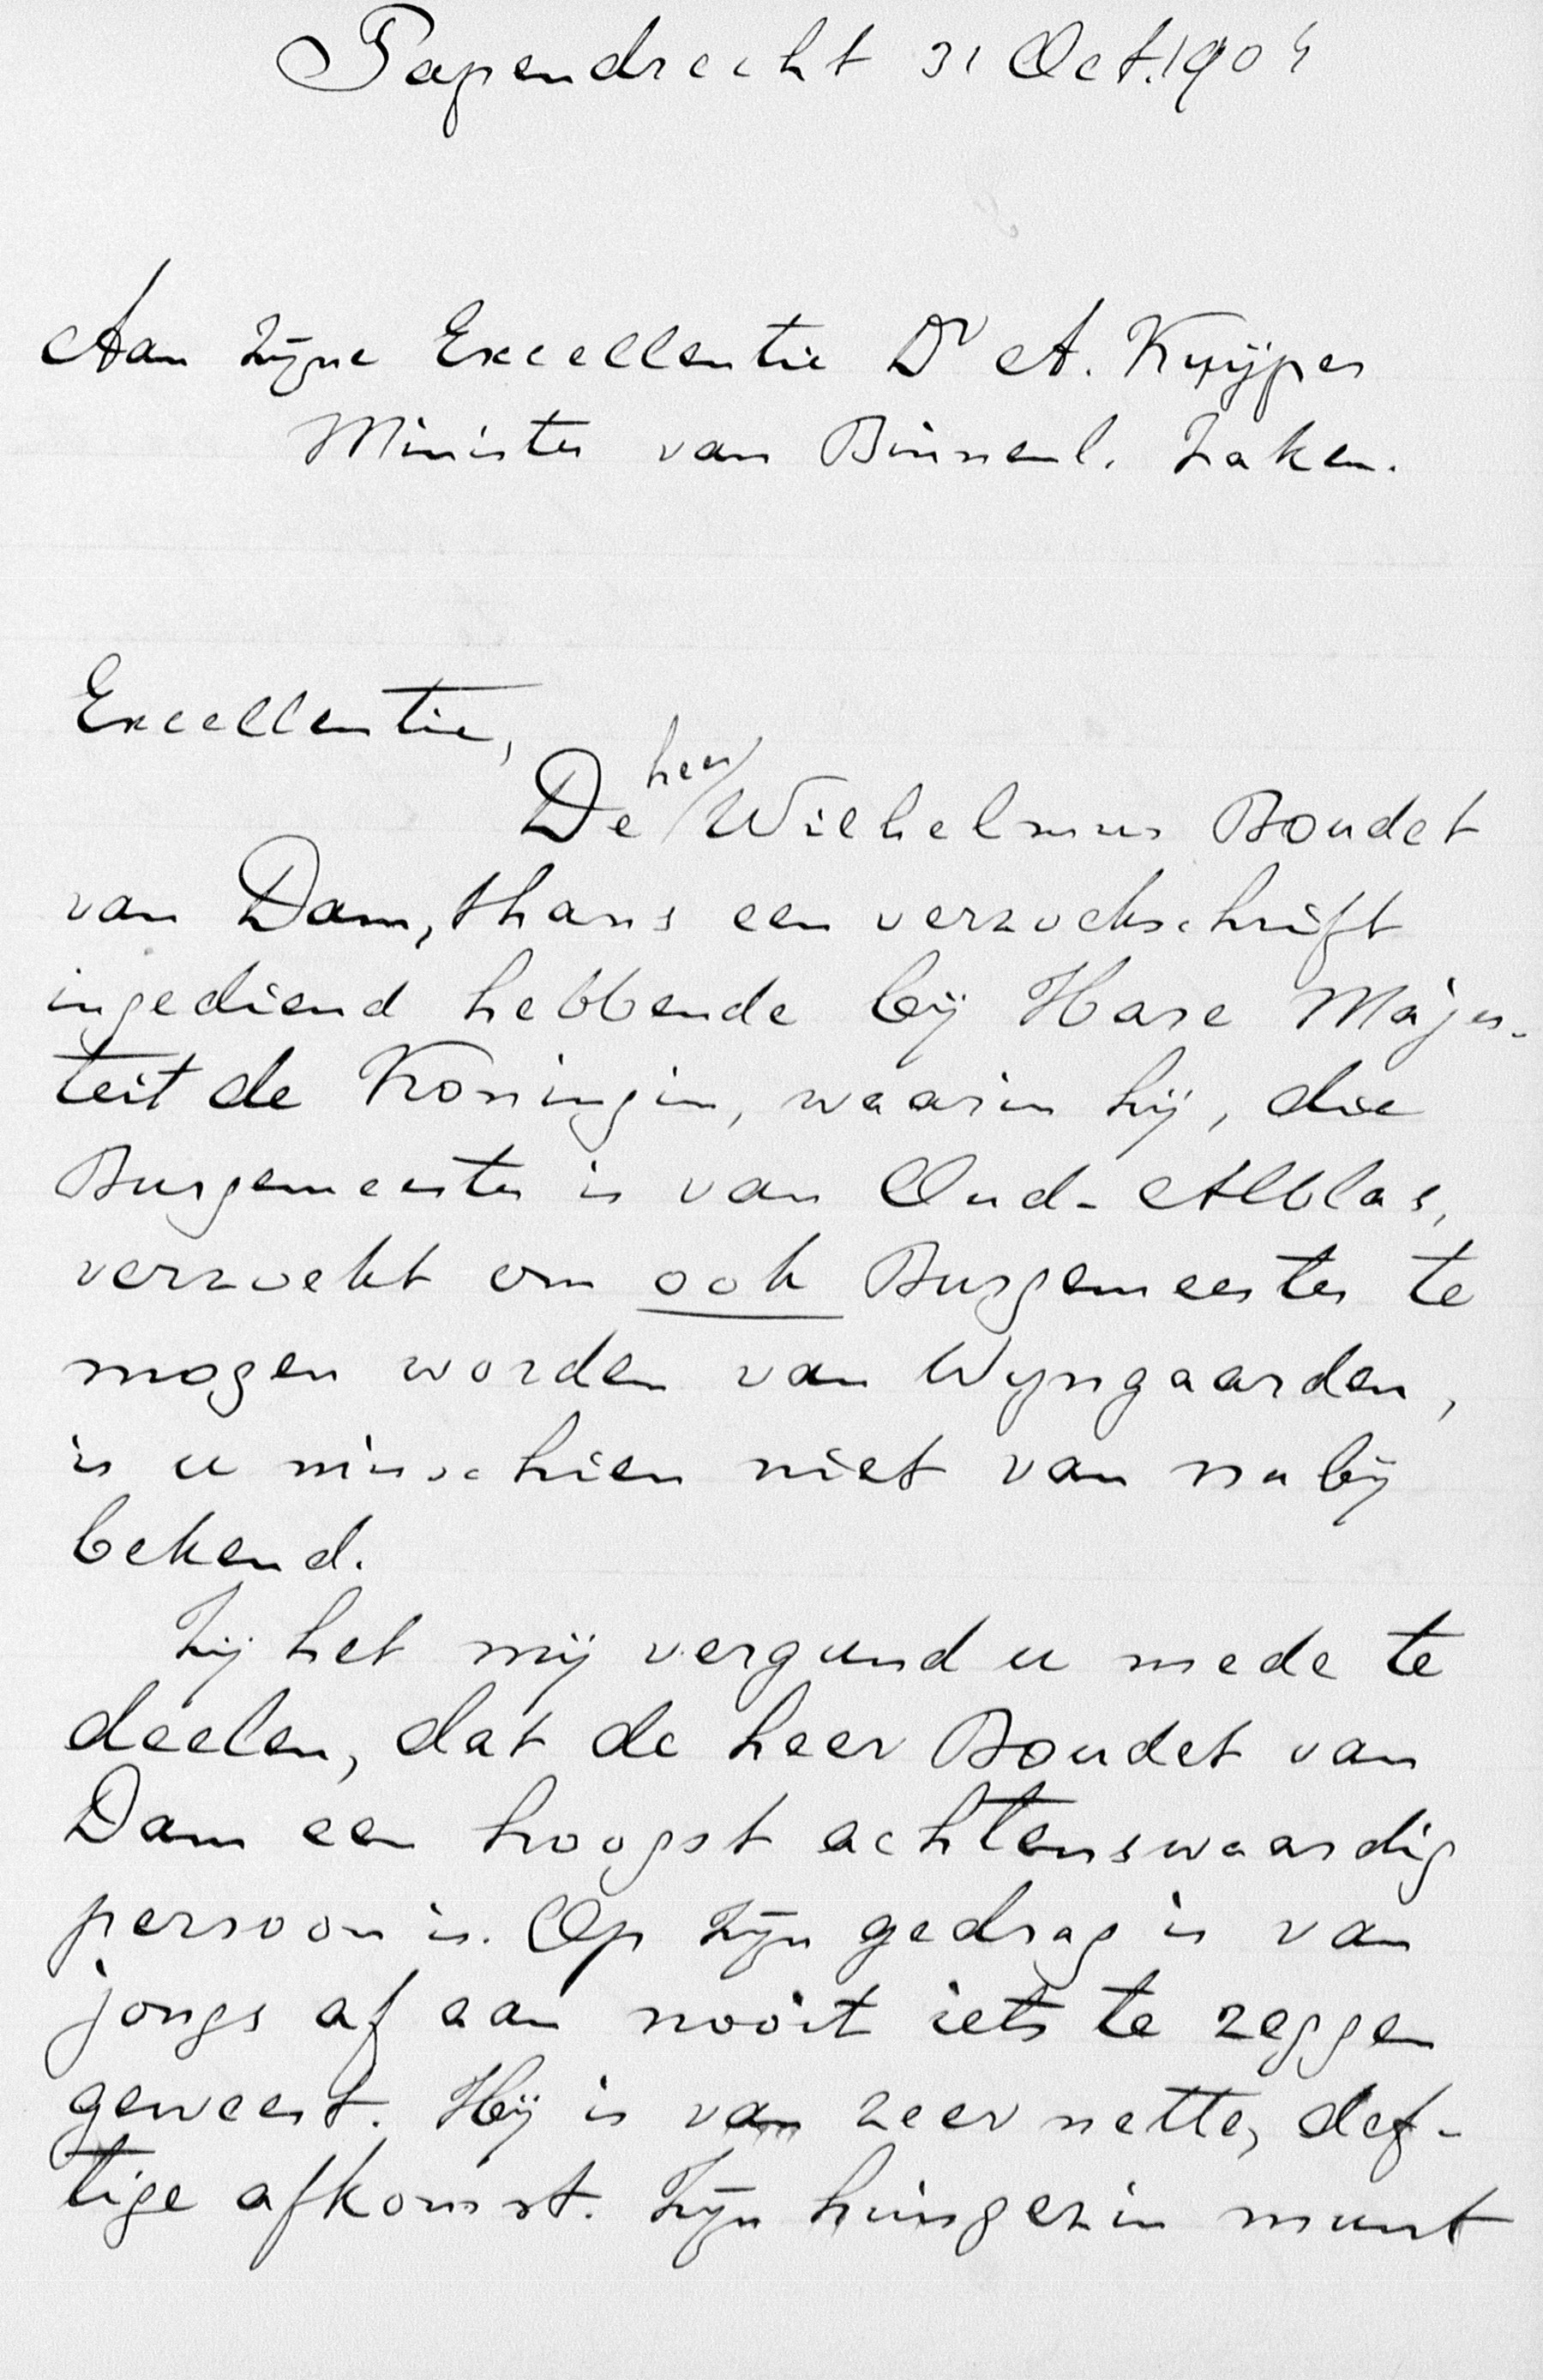 Papendrecht 31 Oct. 1904
Aan Zijne Excellentie Dr A. Kuijper
Minister van Binnenl. Zaken.
Excellentie,
De heer Wilhelmus Boudet
van Dam, thans een verzoekschrift
ingediend hebbende bij Hare Majes-
teit de Koningin, waarin hij, die
Burgemeester is van Oud-Alblas,
verzoekt om ook Burgemeester te
mogen worden van Wyngaarden,
is u misschien niet van nabij
bekend.
Zij het mij vergund u mede te
deelen, dat de heer Boudet van
Dam een hoogst achtenswaardig
persoon is. Op zijn gedrag is van
jongs af aan nooit iets te zeggen
geweest. Hij is van zeer nette, def-
tige afkomst. Zijn huisgezin munt